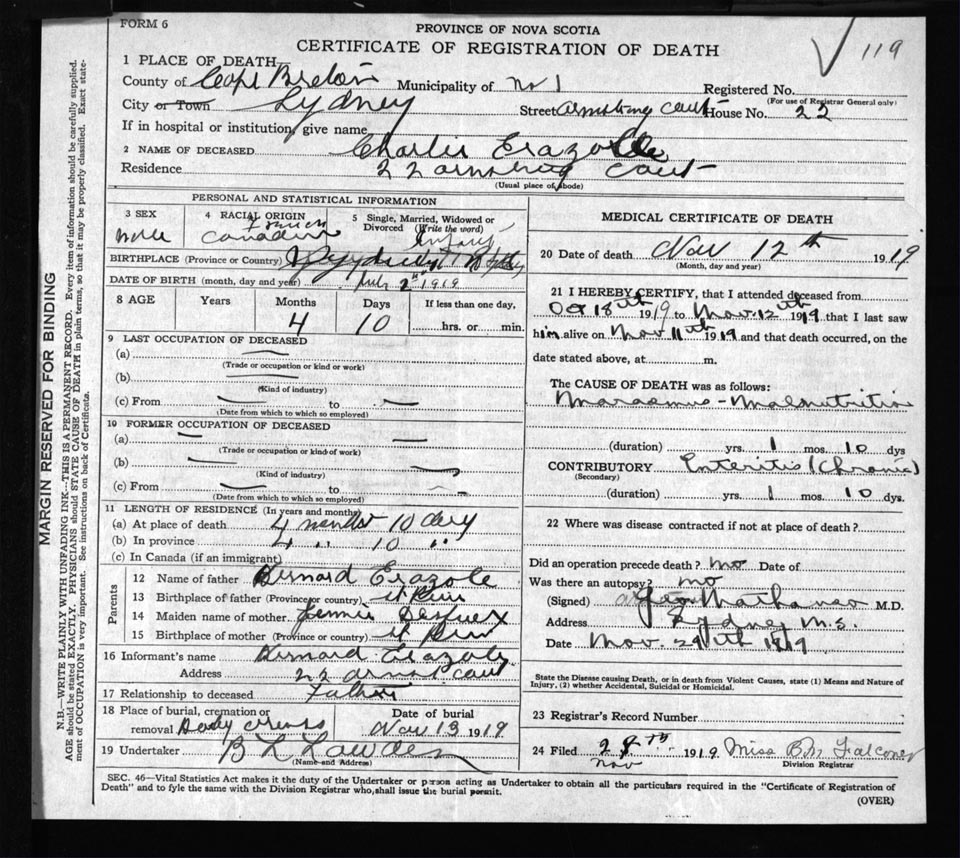 FORM 6
PROVINCE OF NOVA SCOTIA
CERTIFICATE OF REGISTRATION OF DEATH
119
1 PLACE OF DEATH—
County of Cape Breton Municipality of No 1 Registered No.
(For use of Registrar General only)
City or Town Sydney Street Armstrong Court House No. 22
If in hospital or institution, give name
2 NAME OF DECEASED Charlie
Residence 22 Armstrong Court
(Usual place of abode)
PERSONAL AND STATISTICAL INFORMATION
3 SEX
Male
4 RACIAL ORIGIN
French
Canadian
5 Single, Married, Widowed or
Divorced (Write the word)
BIRTHPLACE (Province or Country)
DATE OF BIRTH (month, day and year) July 2nd 1919
8 AGE Years Months Days If less than one day,
4 10 hrs. or min.
9 LAST OCCUPATION OF DECEASED
(a)
(Trade or occupation or kind or work)
(b)
(Kind of industry)
(c) From to
(Date from which to which so employed)
10 FORMER OCCUPATION OF DECEASED
(a)
(Trade or occupation or kind of work)
(b)
(Kind of industry)
(c) From to
(Date from which to which so employed)
11 LENGTH OF RESIDENCE (In years and months)
(a) At place of death 4 months 10 day
(b) In province 4 " 10 "
(c) In Canada (if an immigrant)
Parents
12 Name of father Bernard Erazole
13 Birthplace of father (Province or country) St Pierre
14 Maiden name of mother
15 Birthplace of mother (Province or country) St Pierre
16 Informant's name Bernard Erazole
Address 22 Court
17 Relationship to deceased Father
18 Place of burial, cremation or
removal
Date of burial
Nov 13 1919
19 Undertaker B L
(Name and Address)
MEDICAL CERTIFICATE OF DEATH
20 Date of death Nov 12th 1919
(Month, day and year)
21 I HEREBY CERTIFY, that I attended deceased from
Oct 18th 1919 to Nov. 12th 1919 that I last saw
him alive on Nov 11th 1919 and that death occurred, on the
date stated above, at m.
The CAUSE OF DEATH was as follows:
Marasmus - Malnutrition
(duration) yrs. 1 mos. 10 dys
CONTRIBUTORY Enteritis (Chronic)
(Secondary)
(duration) yrs. 1 mos. 10 dys.
22 Where was disease contracted if not at place of death?
Did an operation precede death? no Date of
Was there an autopsy? no
(Signed) M.D.
Address Sydney N.S.
Date Nov. 29th 1919
State the Disease causing Death, or in death from Violent Causes, state (1) Means and Nature of
Injury, (2) whether Accidental, Suicidal or Homicidal.
23 Registrar's Record Number
24 Filed 29th Nov 1919 Miss Falconer
Division Registrar
SEC. 46—Vital Statistics Act makes it the duty of the Undertaker or person acting as Undertaker to obtain all the particulars required in the "Certificate of Registration of
Death" and to fyle the same with the Division Registrar who, shall issue the burial permit.
(OVER)
MARGIN RESERVED FOR BINDING
N.B.—WRITE PLAINLY WITH UNFADING INK—THIS IS A PERMANENT RECORD. Every item of information should be carefully supplied.
AGE should be stated EXACTLY. PHYSICIANS should STATE CAUSE OF DEATH in plain terms, so that it may be properly classified. Exact state-
ment of OCCUPATION is very important. See instructions on back of Certificate.